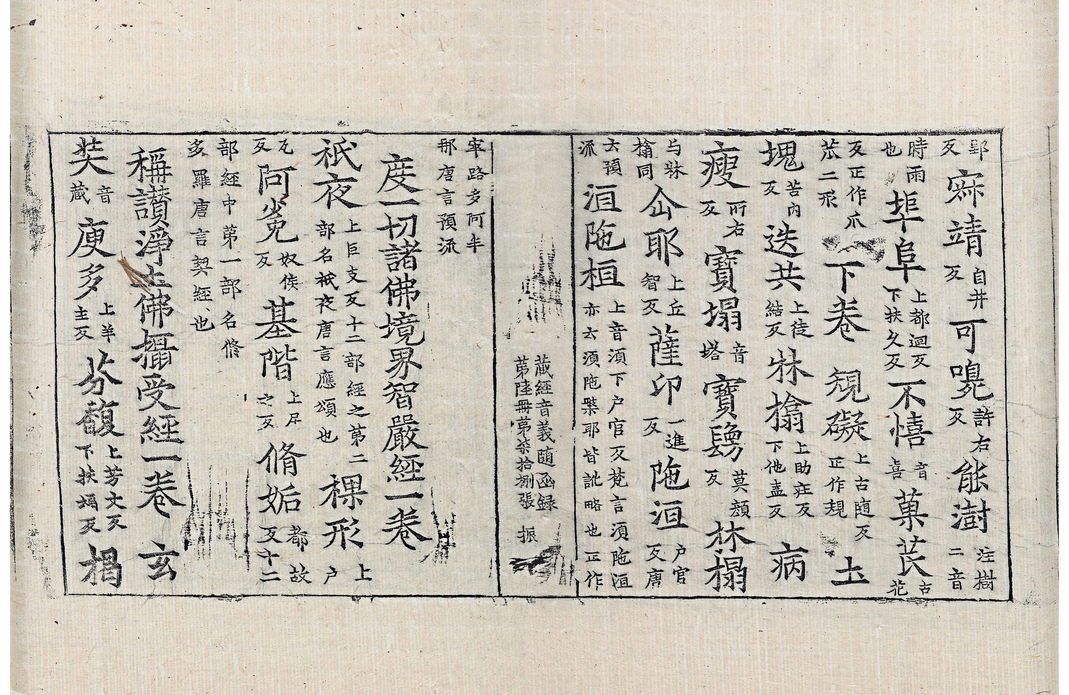 郢反㝛靖自井反可嗅許右反能澍注樹二音
時雨也埠阜上都迴反下扶久反不憘音喜菓苽古花
反正作爪苽二形下卷䂓礙上古随反正作規土
塊苦内反迭共上徒結反牀搶上助庄反下他盍反病
瘦所右反寶塌音塔寶𮢶莫顔反牀榻
与牀搶同仚耶上丘智反薩卬一進反陁洹户官反唐
云預派洹陁桓上音須下户官反梵言須陁洹亦云須陁槃耶皆訛略也正作
藏經音義随函録
苐陸冊苐柒拾捌張 振
窣路多阿半那唐言預流
度一切諸佛境界智嚴經一卷
祇夜上巨支反十二部經之苐二部名祇夜唐言應頌也稞形上户
瓦反阿㝹奴侯反基階上𡰱之反脩妬都故反十二
部經中苐一部名脩多羅唐言契經也
稱讃淨土佛攝受經一卷 玄
奘音藏庾多上羊主反芬馥上芳文反下扶福反揭